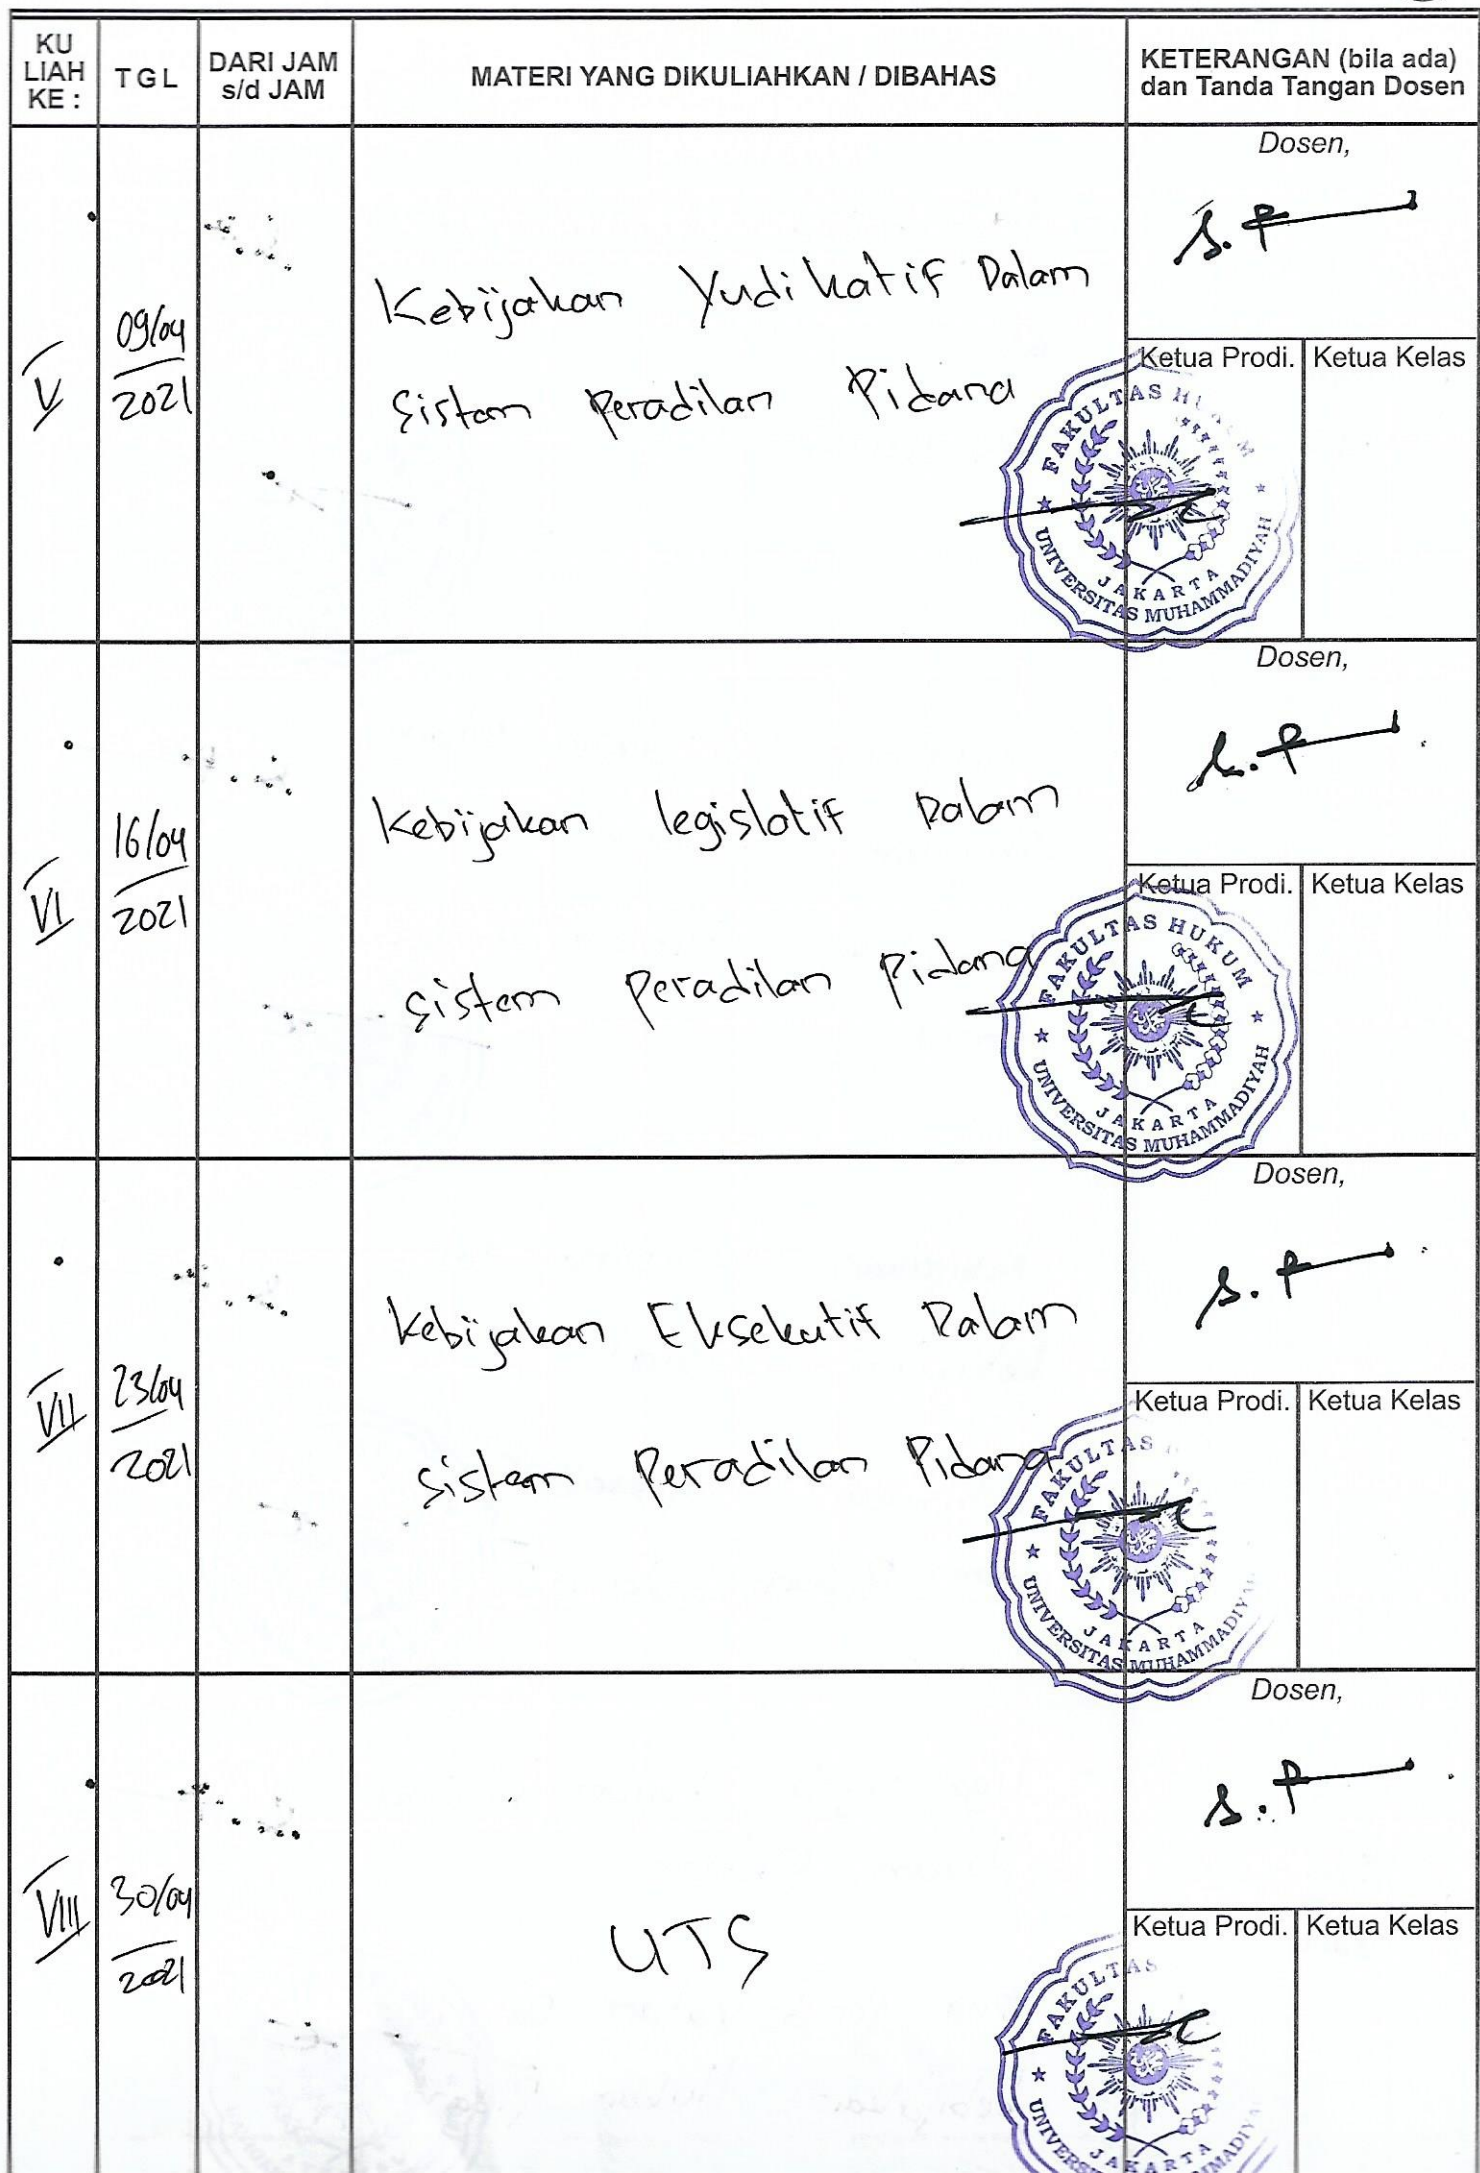 KU
LIAH
KE :
TGL
DARI JAM
s/d JAM
MATERI YANG DIKULIAHKAN / DIBAHAS
KETERANGAN (bila ada)
dan Tanda Tangan Dosen
V
09/04
2021
Kebijakan Yudikatif Dalam
Sistem Peradilan Pidana
Dosen,
Ketua Prodi.
Ketua Kelas
FAKULTAS HUKUM
UNIVERSITAS MUHAMMADIYAH
JAKARTA
VI
16/04
2021
Kebijakan legislatif Dalam
sistem Peradilan Pidana
Dosen,
Ketua Prodi.
Ketua Kelas
FAKULTAS HUKUM
UNIVERSITAS MUHAMMADIYAH
JAKARTA
VII
23/04
2021
Kebijakan Eksekutif Dalam
sistem Peradilan Pidana
Dosen,
Ketua Prodi.
Ketua Kelas
FAKULTAS
UNIVERSITAS MUHAMMADIYAH
JAKARTA
VIII
30/04
2021
UTS
Dosen,
Ketua Prodi.
Ketua Kelas
FAKULTAS
JAKARTA